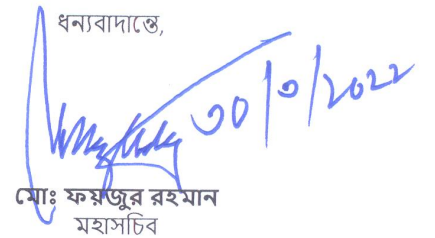 ধন্যবাদান্তে,
৩০/৩/২০২২
মোঃ ফয়জুর রহমান
মহাসচিব